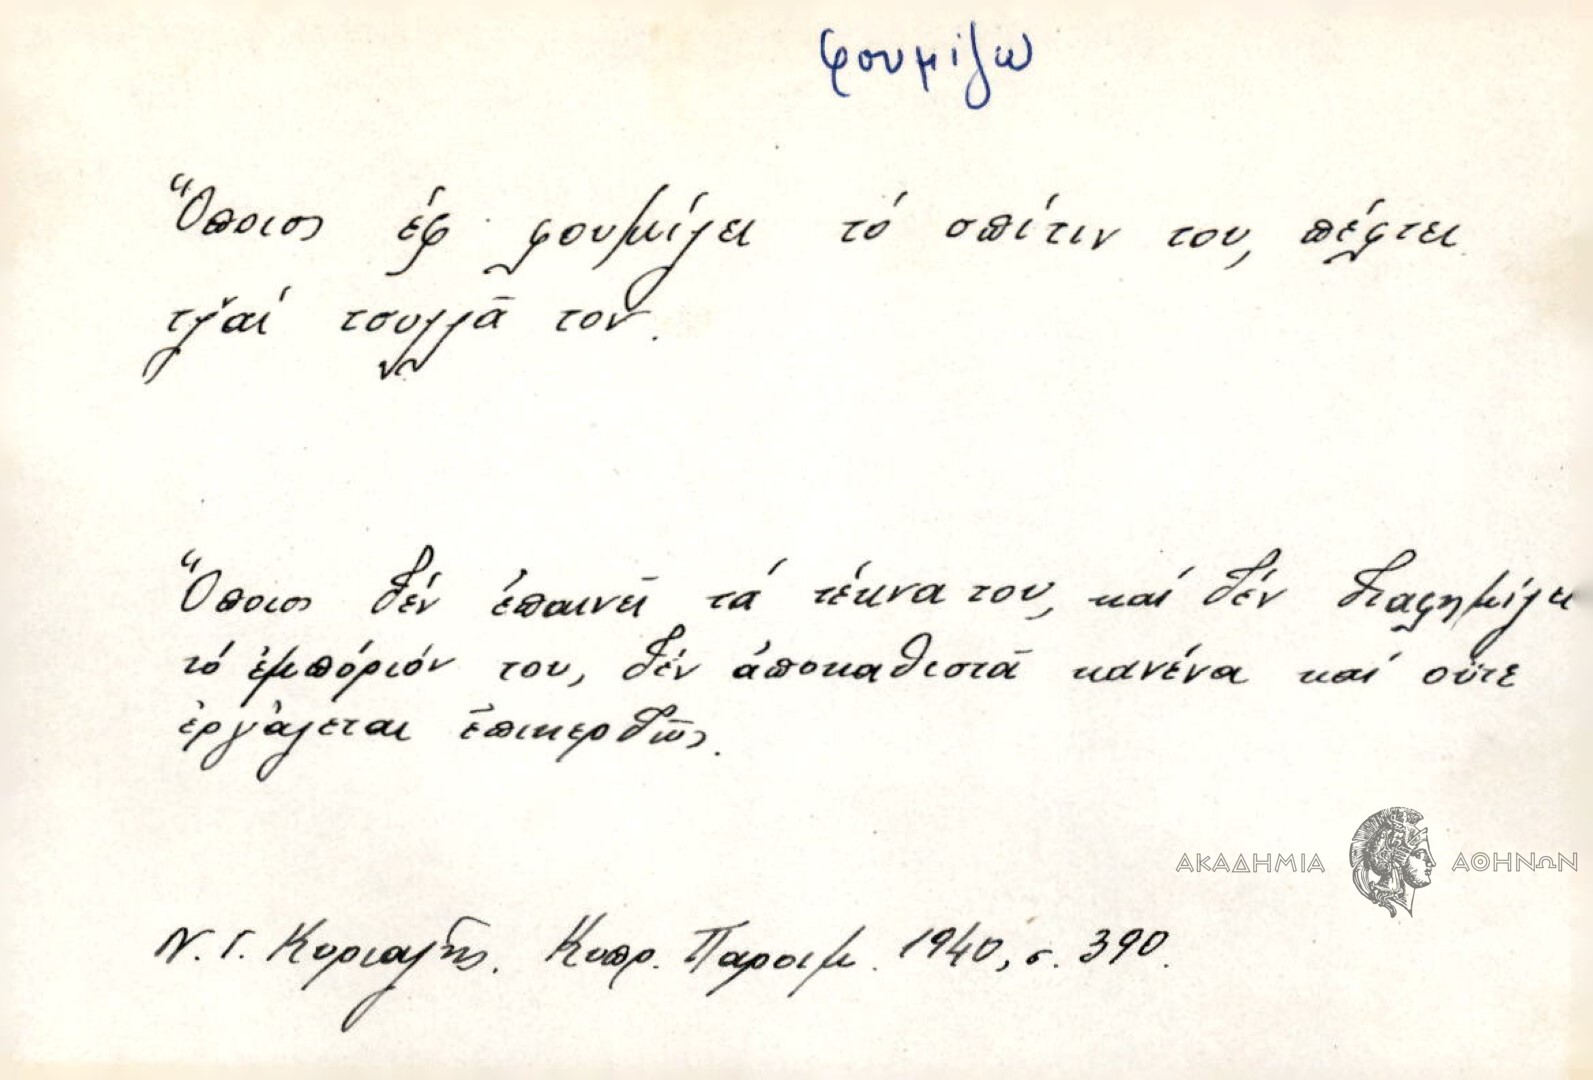 φουμίζω
Ὅποιος ἐφ φουμίζει τό σπίτιν του, πέφτει
τζ̌αί τσυλλᾶ τον.
Ὅποιος δέν ἐπαινεῖ τά τέκνα του, καί δέν διαφημίζει
τό ἐμπόριόν του, δέν ἀποκαθιστᾶ κανένα καί οὔτε
ἐργάζεται ἐπικερδῶς.
ΑΚΑΔΗΜΙΑ ΑΘΗΝΩΝ
Ν. Γ. Κυριαζῆς. Κυπρ. Παροιμ. 1940, σ. 390.